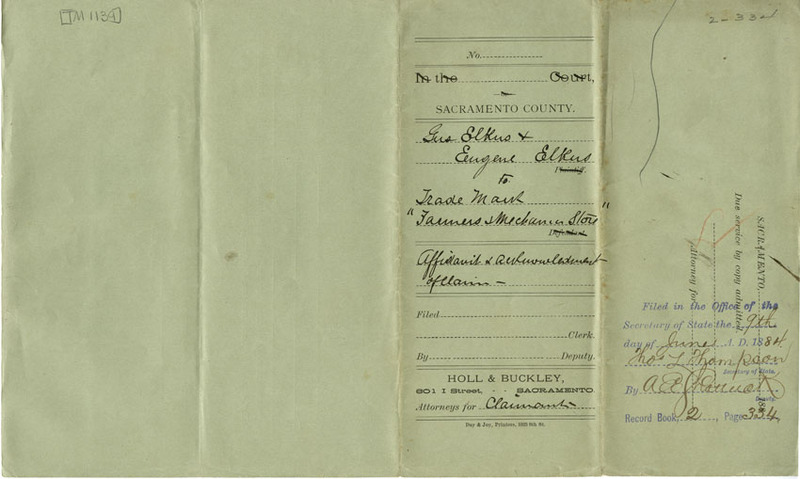 TM 1139
2-334
No.
In the Court,
SACRAMENTO COUNTY.
Gus Elkus &
Eugene Elkus
Plaintiff
to
Trade Mark
"Farmers & Mechanics Store"
Defendant
Affidavit & Acknowledgment
of Claim -
Filed
Clerk.
By Deputy.
HOLL & BUCKLEY,
601 I Street, - - SACRAMENTO.
Attorneys for Claimants
Day & Joy, Printers,
SACRAMENTO, 18
Due service by copy admitted
Attorney for
Filed in the Office of the
Secretary of State the 9th
day of June A. D. 1884
Thos L Thompson
Secretary of State.
By
Deputy.
Record Book, 2, Page 334